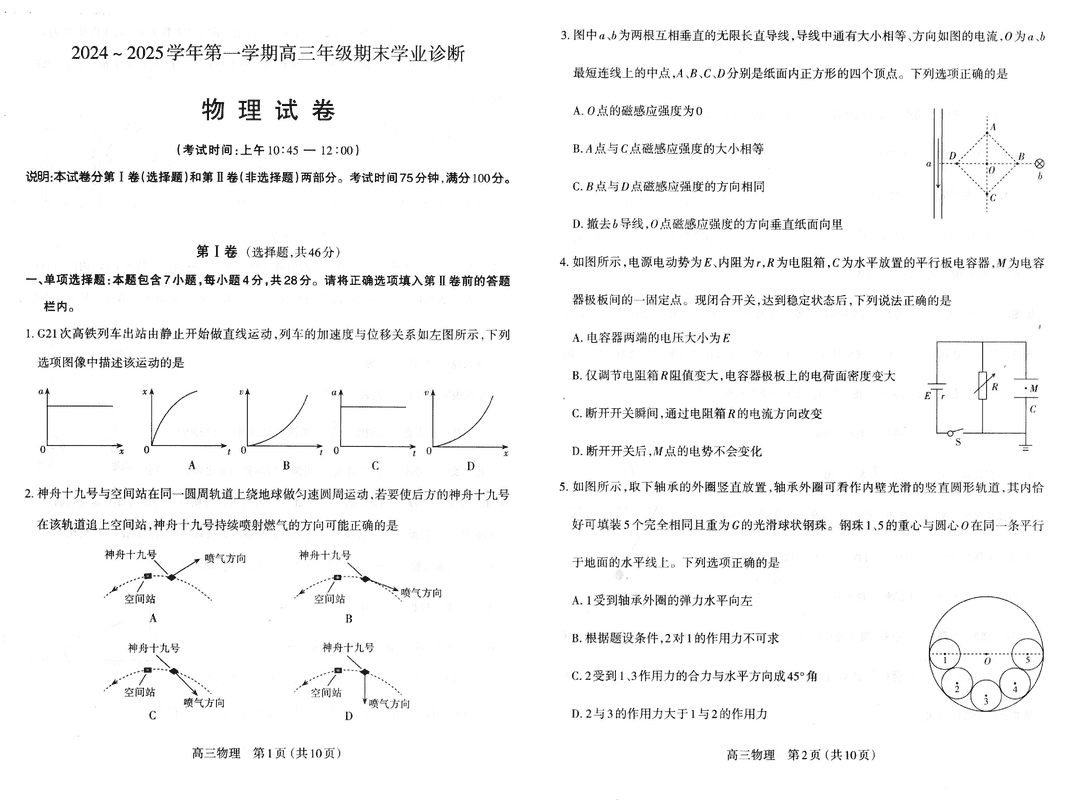 2024~2025学年第一学期高三年级期末学业诊断
物理试卷
(考试时间:上午10:45 — 12:00)
说明:本试卷分第Ⅰ卷(选择题)和第Ⅱ卷(非选择题)两部分。考试时间75分钟,满分100分。
第Ⅰ卷 (选择题,共46分)
一、单项选择题:本题包含7小题,每小题4分,共28分。请将正确选项填入第Ⅱ卷前的答题
栏内。
1. G21次高铁列车出站由静止开始做直线运动,列车的加速度与位移关系如左图所示,下列
选项图像中描述该运动的是
a x v a v
0 x 0 t 0 t 0 t 0 x
A B C D
2. 神舟十九号与空间站在同一圆周轨道上绕地球做匀速圆周运动,若要使后方的神舟十九号
在该轨道追上空间站,神舟十九号持续喷射燃气的方向可能正确的是
神舟十九号 喷气方向 神舟十九号
空间站 空间站 喷气方向
A B
神舟十九号 神舟十九号
空间站 喷气方向 空间站 喷气方向
C D
高三物理 第1页 (共10页)
3. 图中a、b为两根互相垂直的无限长直导线,导线中通有大小相等、方向如图的电流,O为a、b
最短连线上的中点,A、B、C、D分别是纸面内正方形的四个顶点。下列选项正确的是
A. O点的磁感应强度为0
B. A点与C点磁感应强度的大小相等
C. B点与D点磁感应强度的方向相同
D. 撤去b导线,O点磁感应强度的方向垂直纸面向里
A
a D B
O b
C
4. 如图所示,电源电动势为E、内阻为r,R为电阻箱,C为水平放置的平行板电容器,M为电容
器极板间的一固定点。现闭合开关,达到稳定状态后,下列说法正确的是
A. 电容器两端的电压大小为E
B. 仅调节电阻箱R阻值变大,电容器极板上的电荷面密度变大
C. 断开开关瞬间,通过电阻箱R的电流方向改变
D. 断开开关后,M点的电势不会变化
E r R M
C
S
5. 如图所示,取下轴承的外圈竖直放置,轴承外圈可看作内壁光滑的竖直圆形轨道,其内恰
好可填装5个完全相同且重为G的光滑球状钢珠。钢珠1、5的重心与圆心O在同一条平行
于地面的水平线上。下列选项正确的是
A. 1受到轴承外圈的弹力水平向左
B. 根据题设条件,2对1的作用力不可求
C. 2受到1、3作用力的合力与水平方向成45°角
D. 2与3的作用力大于1与2的作用力
1 O 5
2 4
3
高三物理 第2页 (共10页)